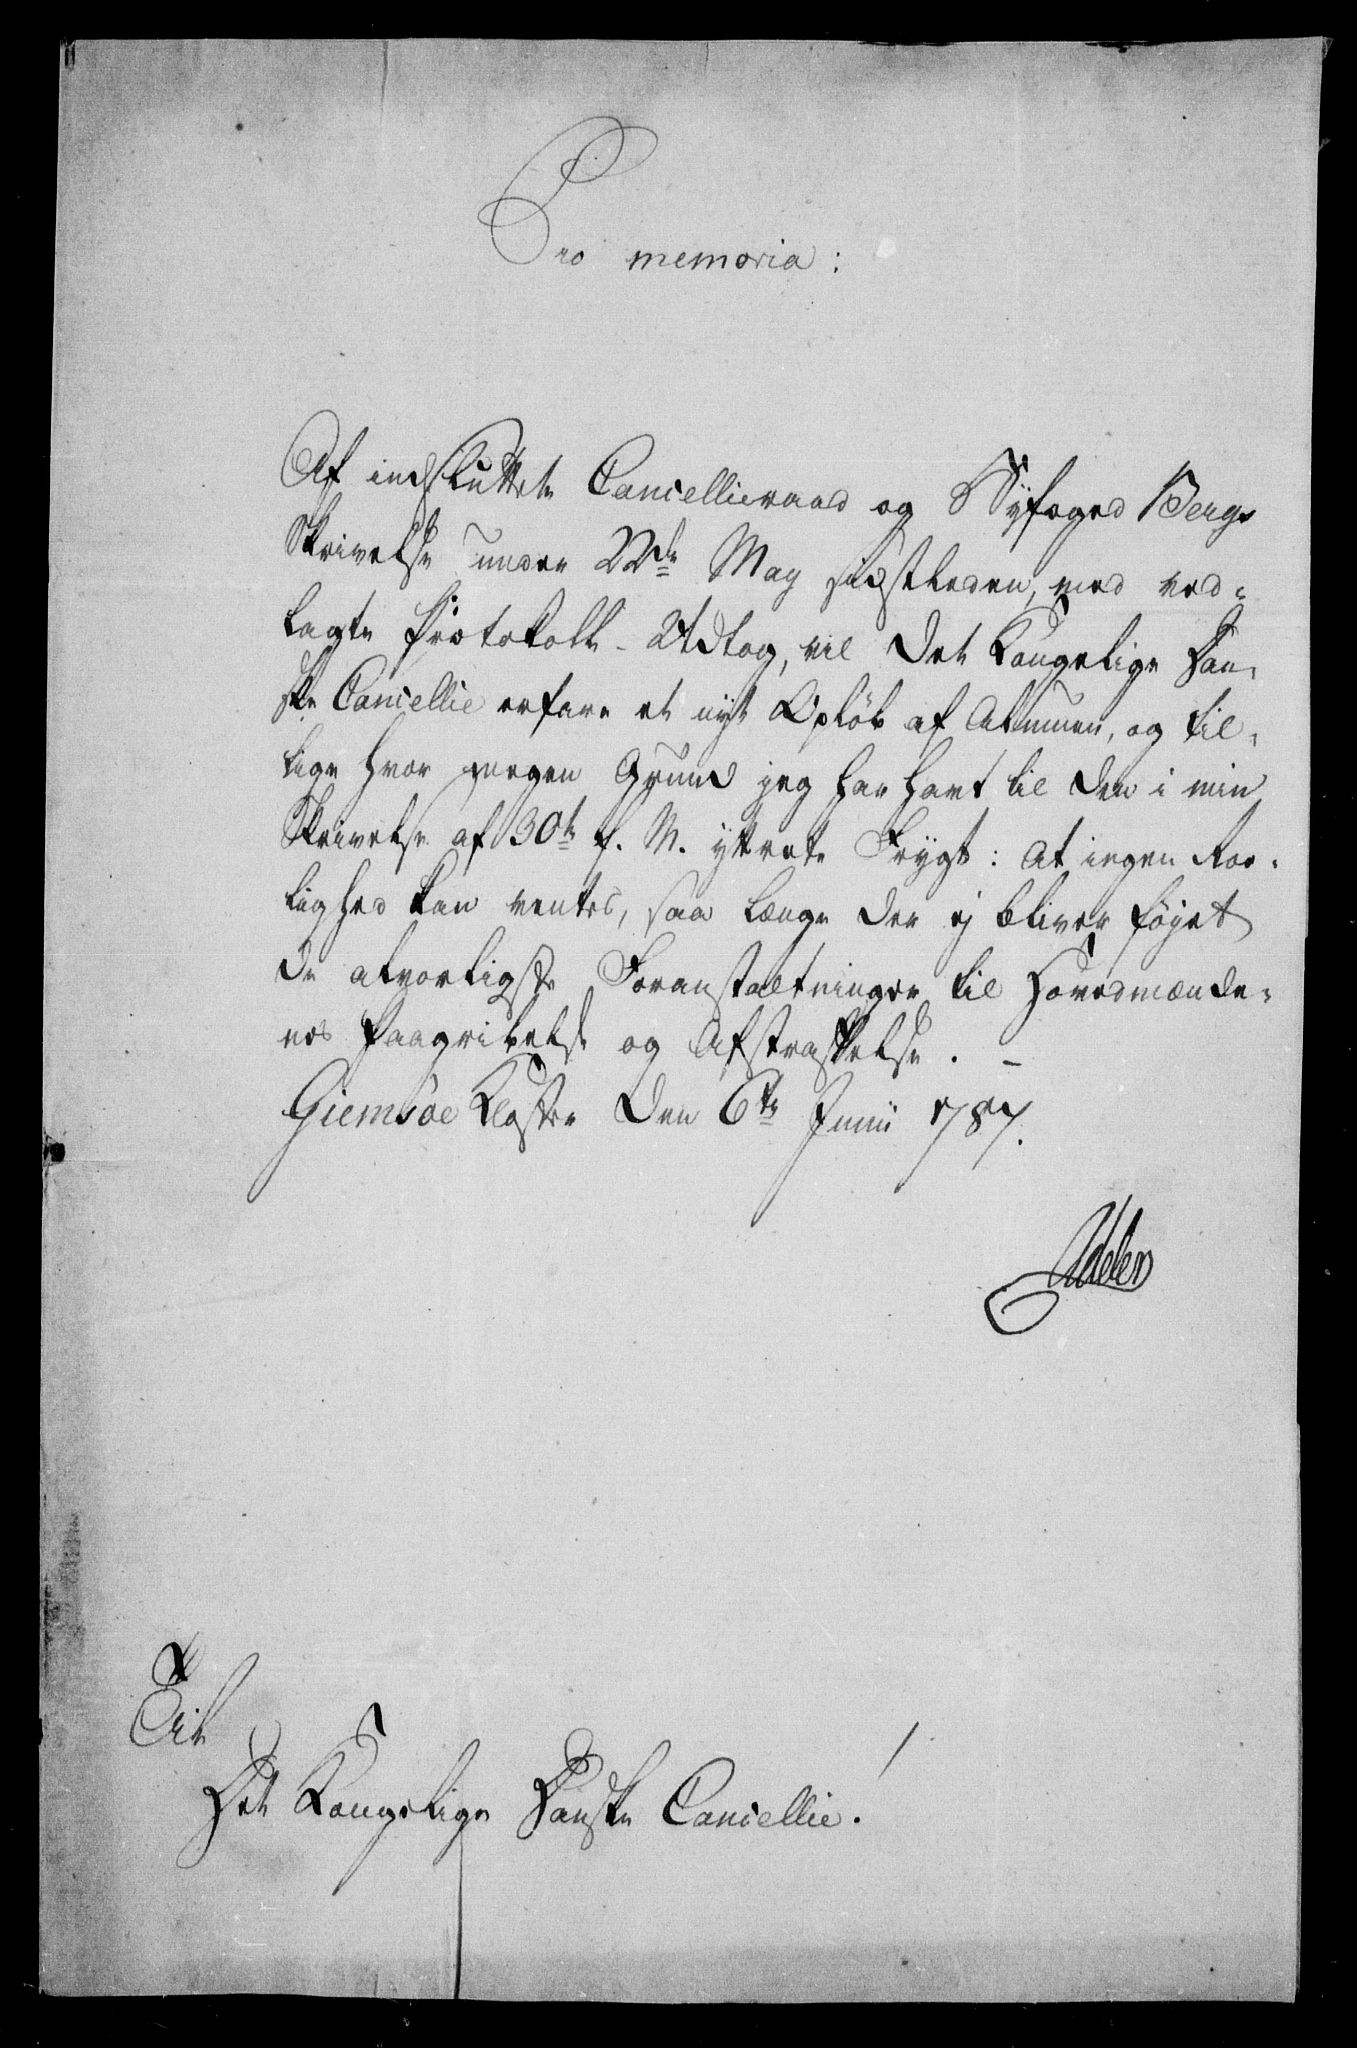 Pro memoria:
Af indsluttede Cancellieraad og Byfoged Bergs
Skrivelse under 22de May sidstleden, med ved-
lagte Protokoll-Udtog, vil Det Kongelige Dan-
ske Cancellie erfare et nyt Opløb af Almuen, og til-
lige hvor megen Grund jeg har havt til den i min
Skrivelse af 30te f. M. yttrede Frygt: At ingen Roe-
lighed kan ventes, saa længe der ej bliver føjet
de alvorligste Foranstaltninger til Hovedmænde-
nes Paagribelse og Afstraffelse. -
Giemsøe Kloster den 6te Junii 1787.
Adeler
Til
Det Kongelige Danske Cancellie!